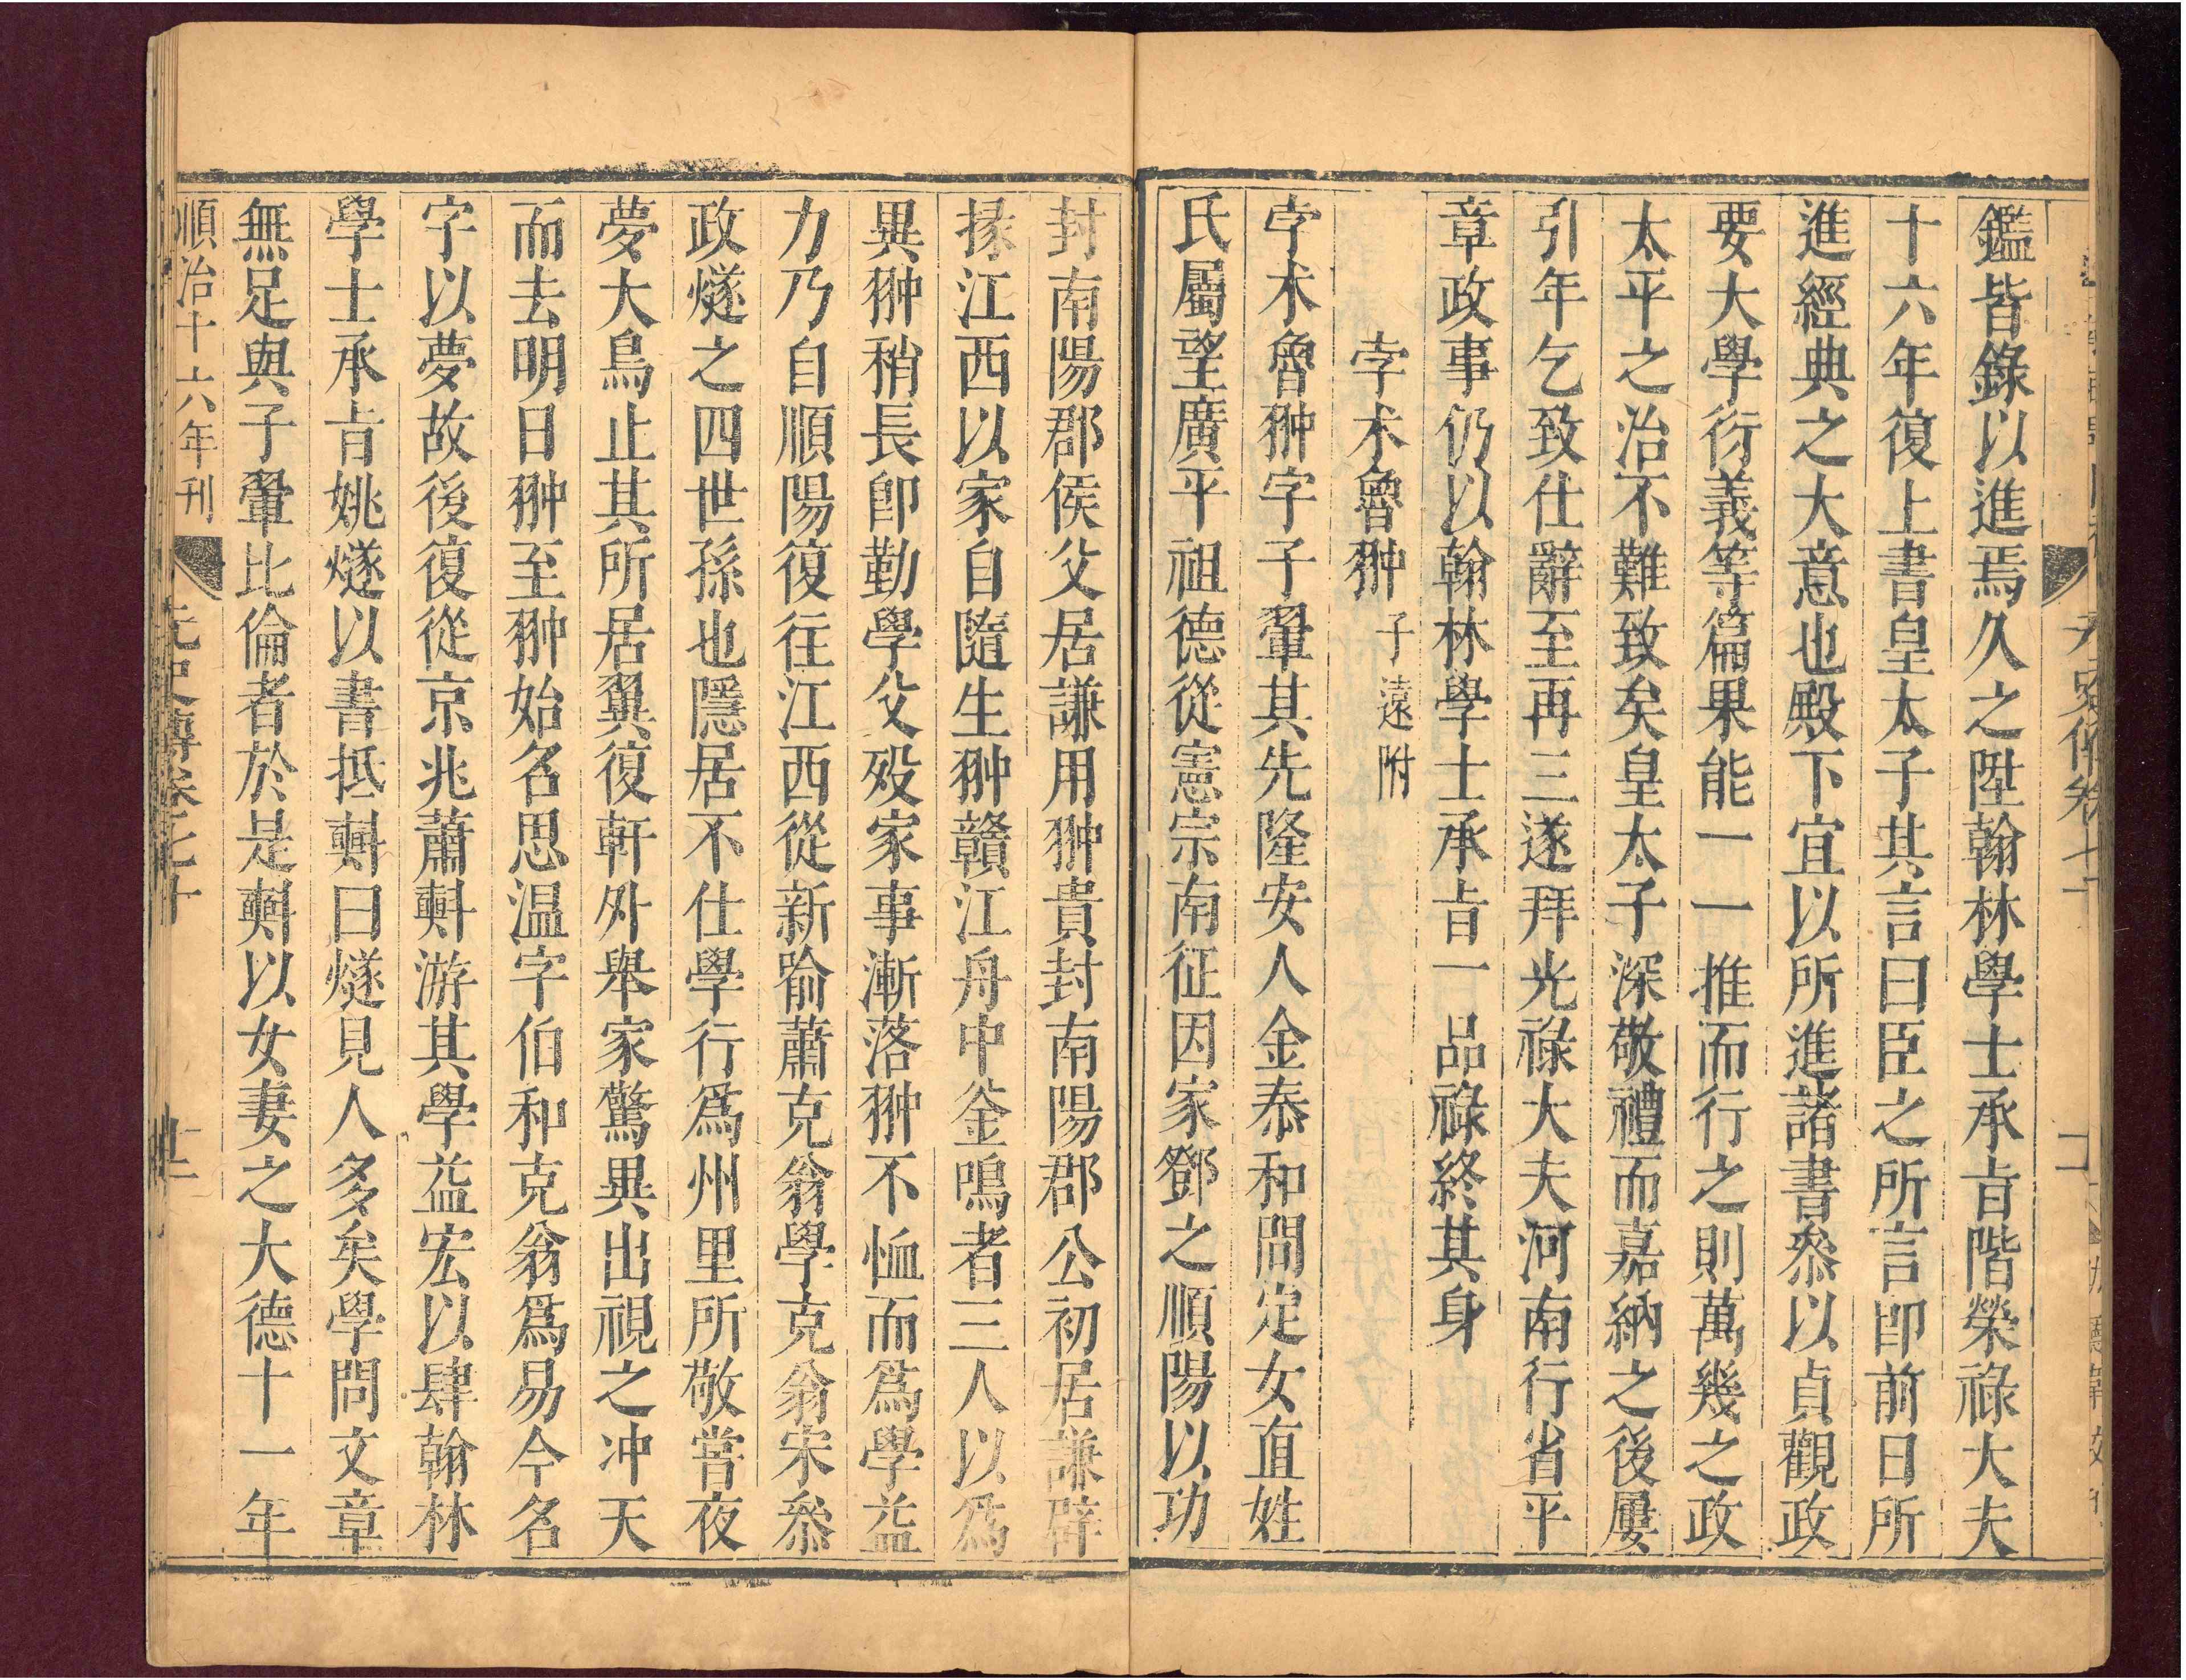 鑑皆錄以進焉久之陞翰林學士承㫖階榮祿大夫
十六年復上書皇太子其言曰臣之所言卽前日所
進經典之大意也殿下宜以所進諸書叅以貞觀政
要大學衍義等篇果能一一推而行之則萬幾之政
太平之治不難致矣皇太子深敬禮而嘉納之後屢
引年乞致仕辭至再三遂拜光祿大夫河南行省平
章政事仍以翰林學士承㫖一品祿終其身
孛术魯翀 子遠附
孛术魯翀字子翬其先隆安人金泰和間定女直姓
氏屬望廣平祖德從憲宗南征因家鄧之順陽以功
封南陽郡侯父居謙用翀貴封南陽郡公初居謙辟
掾江西以家自隨生翀贛江舟中釜鳴者三人以爲
異翀稍長卽勤學父歿家事漸落翀不恤而爲學益
力乃自順陽復往江西從新喻蕭克翁學克翁宋叅
政燧之四世孫也隱居不仕學行爲州里所敬嘗夜
夢大鳥止其所居翼復軒外舉家驚異出視之冲天
而去明日翀至翀始名思温字伯和克翁爲易今名
字以夢故後復從京兆蕭𣂏游其學益宏以肆翰林
學士承㫖姚燧以書抵𣂏曰燧見人多矣學問文章
無足與子翬比倫者於是𣂏以女妻之大德十一年
順治十六年刊 元史傳卷七十